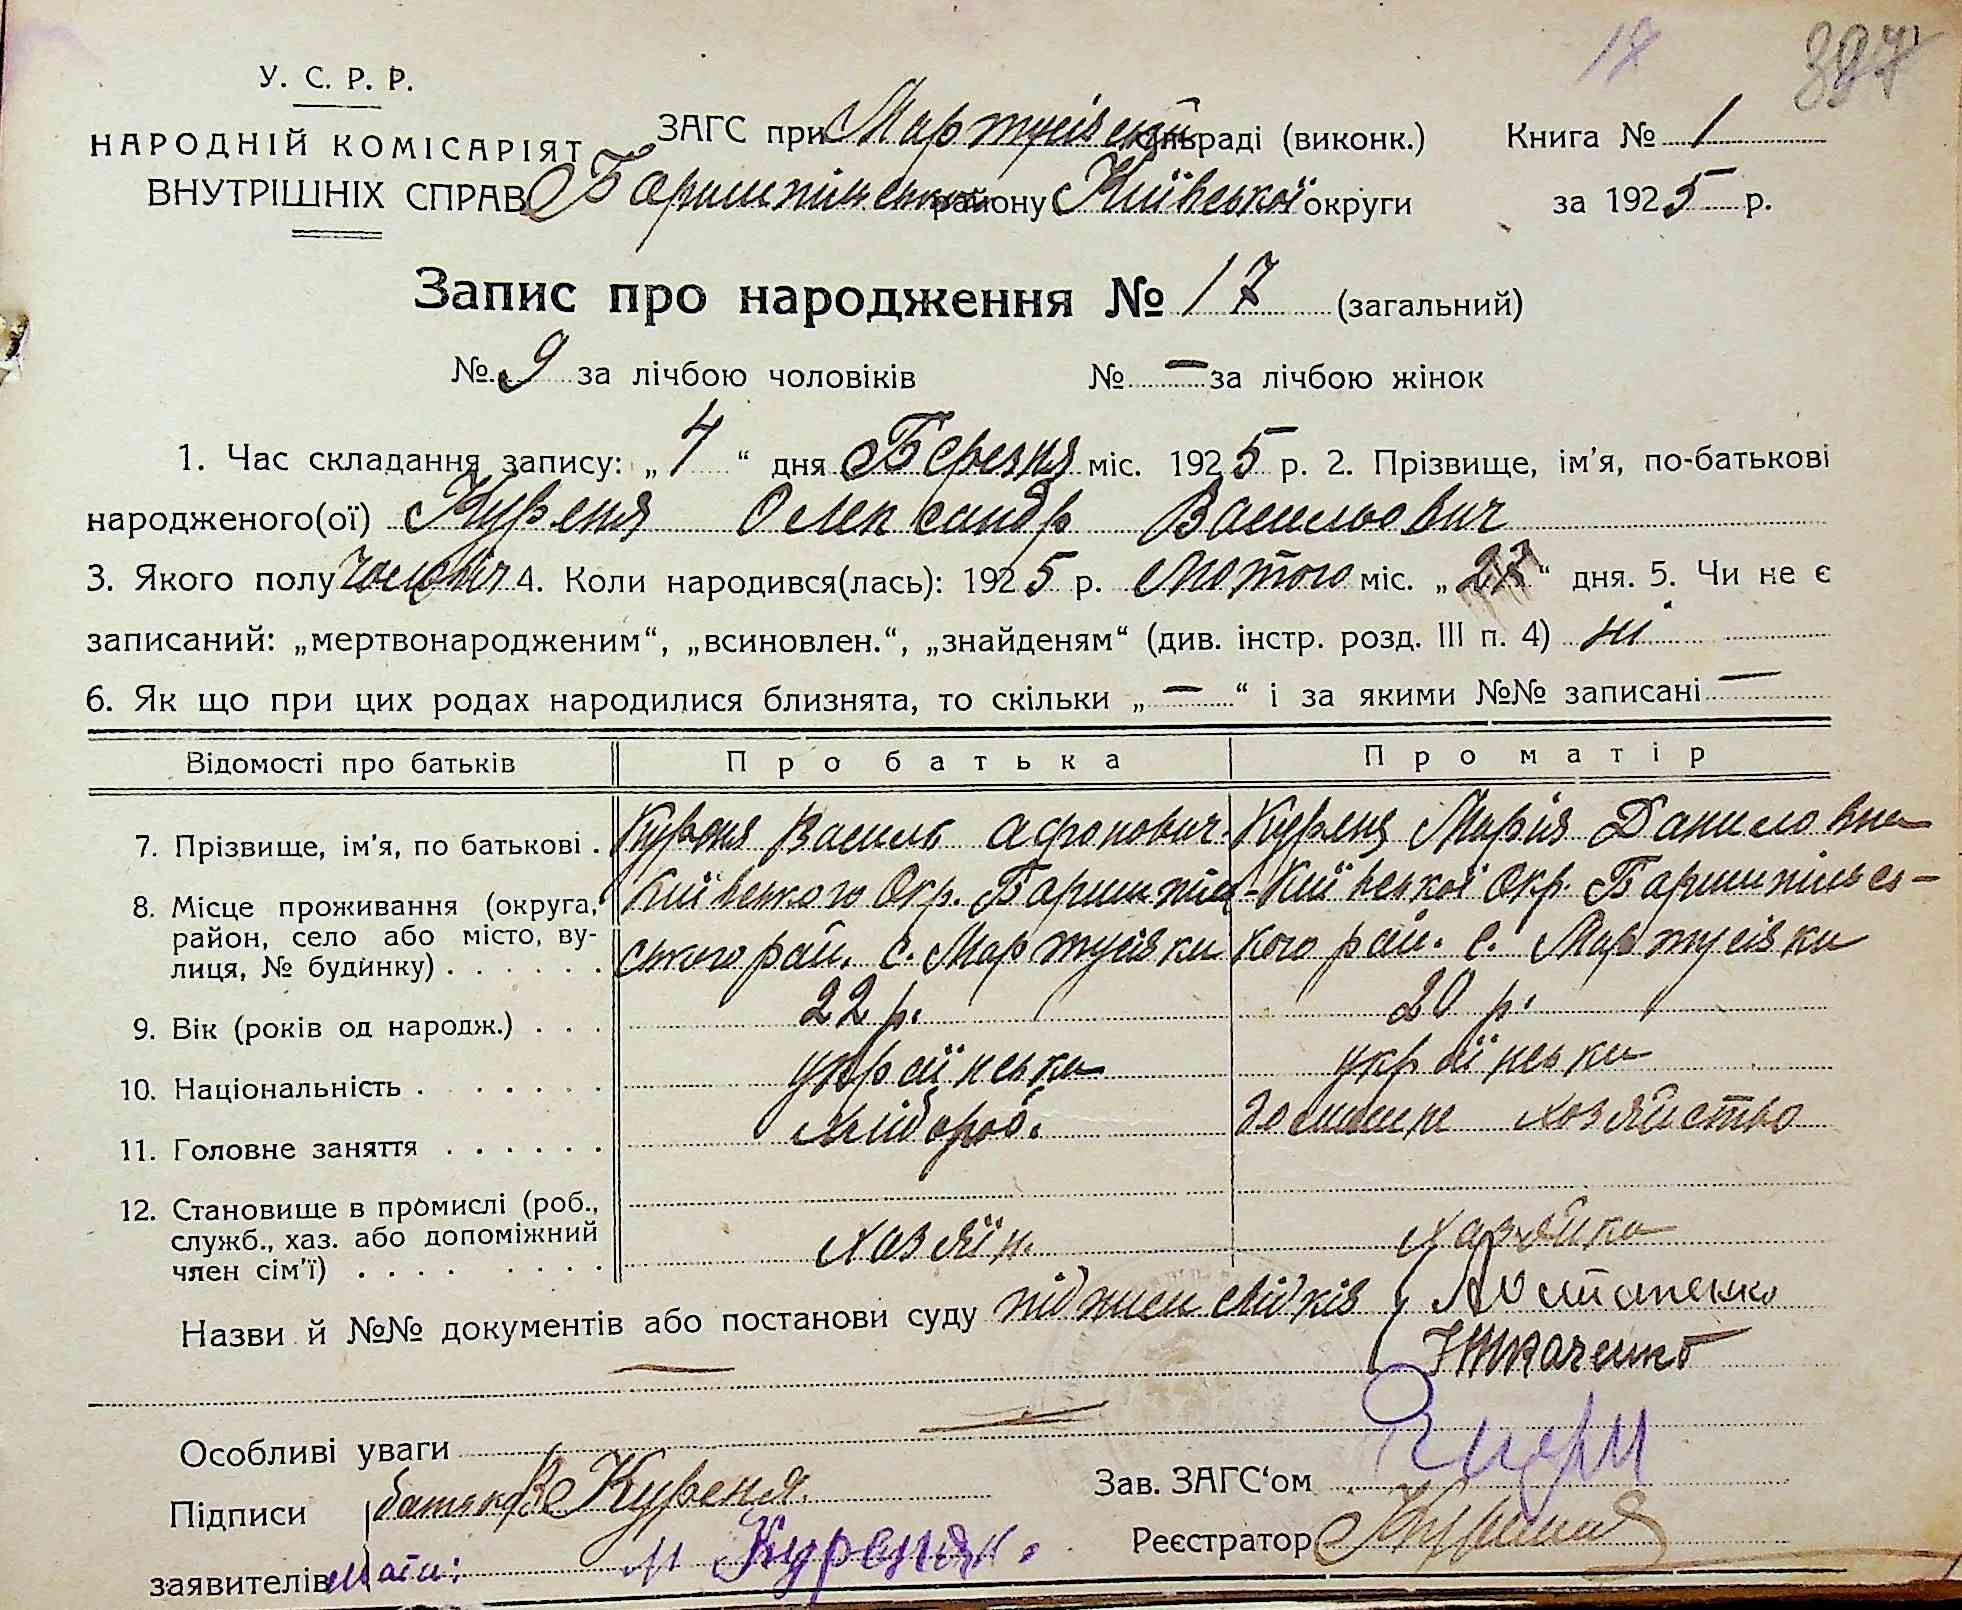 17 397
У. С. Р. Р.
НАРОДНІЙ КОМІСАРІЯТ ЗАГС при Мартусівській сільраді (виконк.) Книга № 1
ВНУТРІШНІХ СПРАВ Баришпільського району Київської округи за 1925 р.
Запис про народження № 17 (загальний)
№ 9 за лічбою чоловіків № — за лічбою жінок
1. Час складання запису: „ 4 “ дня Березня міс. 1925 р. 2. Прізвище, ім'я, по-батькові
народженого(ої) Куреня Олександр Васильович
3. Якого полу 4. Коли народився(лась): 1925 р. лютого міс. „ “ дня. 5. Чи не є
записаний: „мертвонародженим“, „всиновлен.“, „знайденям“ (див. інстр. розд. III п. 4) ні
6. Як що при цих родах народилися близнята, то скільки „ — “ і за якими №№ записані —
Відомості про батьків Про батька Про матір
7. Прізвище, ім'я, по батькові . Куреня Василь Афонович Куреня Марія Даниловна
8. Місце проживання (округа, Київського Окр. Баришпіль- Київської Окр. Баришпільсь-
район, село або місто, ву- ського рай. с. Мартусівки кого рай. с. Мартусівки
лиця, № будинку) . . . . . .
9. Вік (років од народж.) . . . 22 р. 20 р.
10. Національність . . . . . . . українська українська
11. Головне заняття . . . . . . хлібороб. хозяйство
12. Становище в промислі (роб.,
служб., хаз. або допоміжний хозяїн. хазяйка
член сім'ї) . . . . . . . .
Назви й №№ документів або постанови суду підписи свідків
Ткаченко
—
Особливі уваги —
Підписи батько В Куреня. Зав. ЗАГС'ом
заявителів Мати: М Куреня. Реєстратор